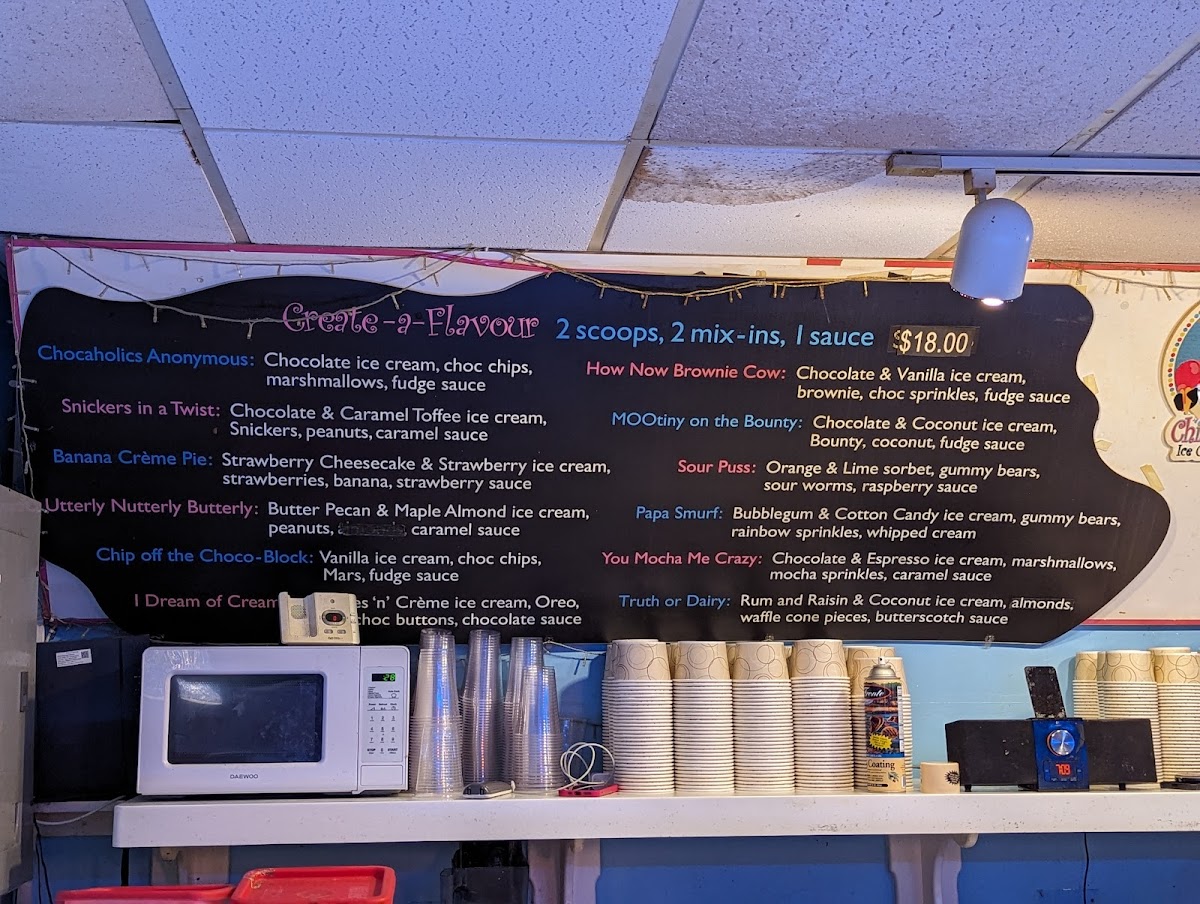 Create-a-Flavour 2 scoops, 2 mix-ins, 1 sauce $18.00
Chocaholics Anonymous: Chocolate ice cream, choc chips,
marshmallows, fudge sauce
Snickers in a Twist: Chocolate & Caramel Toffee ice cream,
Snickers, peanuts, caramel sauce
Banana Crème Pie: Strawberry Cheesecake & Strawberry ice cream,
strawberries, banana, strawberry sauce
Utterly Nutterly Butterly: Butter Pecan & Maple Almond ice cream,
peanuts, caramel sauce
Chip off the Choco-Block: Vanilla ice cream, choc chips,
Mars, fudge sauce
I Dream of Cream 'n' Crème ice cream, Oreo,
choc buttons, chocolate sauce
How Now Brownie Cow: Chocolate & Vanilla ice cream,
brownie, choc sprinkles, fudge sauce
MOOtiny on the Bounty: Chocolate & Coconut ice cream,
Bounty, coconut, fudge sauce
Sour Puss: Orange & Lime sorbet, gummy bears,
sour worms, raspberry sauce
Papa Smurf: Bubblegum & Cotton Candy ice cream, gummy bears,
rainbow sprinkles, whipped cream
You Mocha Me Crazy: Chocolate & Espresso ice cream, marshmallows,
mocha sprinkles, caramel sauce
Truth or Dairy: Rum and Raisin & Coconut ice cream, almonds,
waffle cone pieces, butterscotch sauce
Ice
DAEWOO
Coating